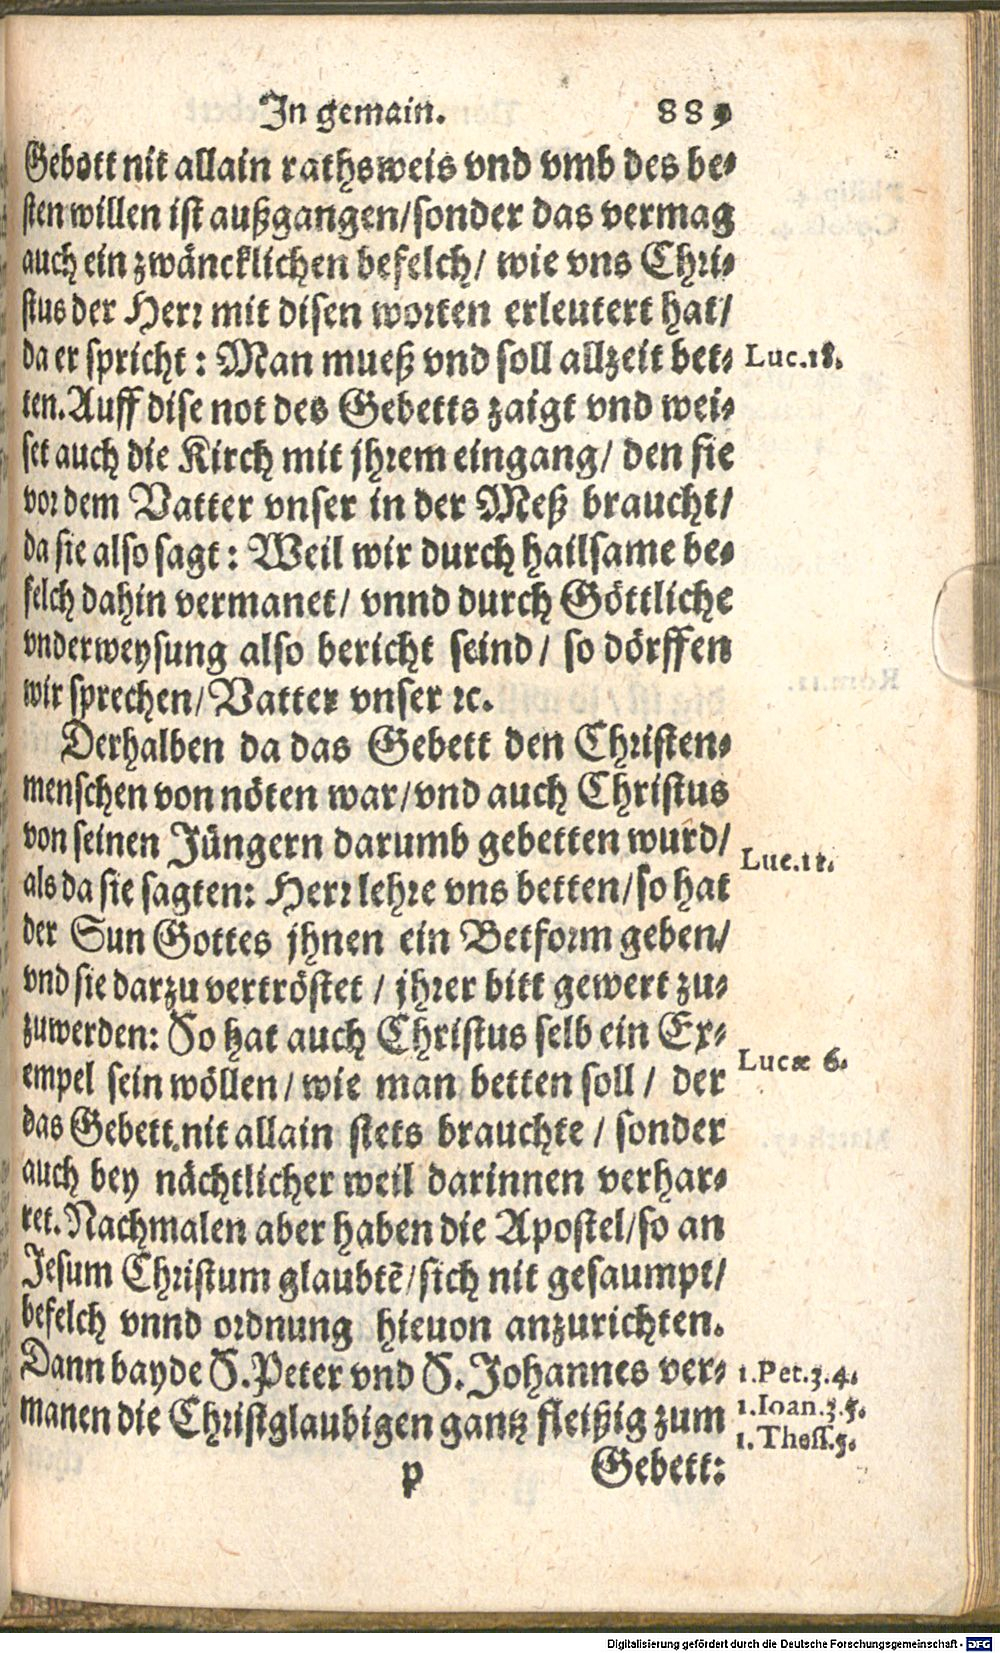 In gemain. 889
Gebott nit allain rathsweis vnd vmb des be⸗
sten willen ist außgangen/sonder das vermag
auch ein zwäncklichen befelch/ wie vns Chri⸗
stus der Herr mit disen worten erleutert hat/
da er spricht: Man mueß vnd soll allzeit bet⸗ Luc.18.
ten. Auff dise not des Gebetts zaigt vnd wei⸗
set auch die Kirch mit jhrem eingang/ den sie
vor dem Vatter vnser in der Meß braucht/
da sie also sagt: Weil wir durch hailsame be⸗
felch dahin vermanet/ vnnd durch Göttliche
vnderweysung also bericht seind/ so dörffen
wir sprechen/ Vatter vnser ꝛc.
Derhalben da das Gebett den Christen⸗
menschen von nöten war/vnd auch Christus
von seinen Jüngern darumb gebetten wurd/
als da sie sagten: Herr lehre vns betten/so hat Luc.11.
der Sun Gottes jhnen ein Betform geben/
vnd sie darzu vertröstet / jhrer bitt gewert zu⸗
zuwerden: So hat auch Christus selb ein Ex⸗
empel sein wöllen/ wie man betten soll / der Lucæ 6.
das Gebett nit allain stets brauchte / sonder
auch bey nächtlicher weil darinnen verhar⸗
ret. Nachmalen aber haben die Apostel/so an
Jesum Christum glaubtē/sich nit gesaumpt/
befelch vnnd ordnung hieuon anzurichten.
Dann bayde S. Peter vnd S. Johannes ver⸗ 1.Pet.3.4.
manen die Christglaubigen gantz fleißig zum 1.Ioan.3.5.
1.Thess.5.
p Gebett:
Digitalisierung gefördert durch die Deutsche Forschungsgemeinschaft - DFG